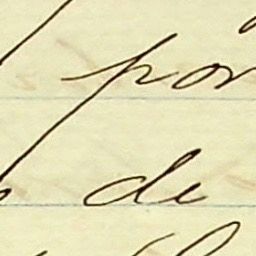 por
de